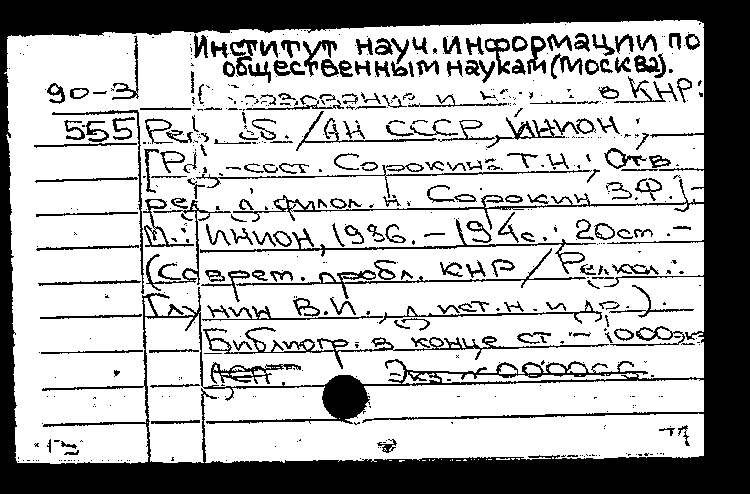 Институт науч. информации по
общественным наукам (Москва).
90-3 Образование и в КНР:
555 Реф. сб. / АН СССР, ИНИОН ;
[Ред.-сост. Сорокина Т.Н. ; Отв.
ред. д. филол. н. Сорокин В.Ф.].-
М.: ИНИОН, 1986. - 194 с. ; 20 см. -
(Соврем. пробл. КНР / Редкол.:
Глунин В.И., д. ист. н. и др.).
Библиогр. в конце ст. - 1000 экз
ДСП. Экз. № 000066.